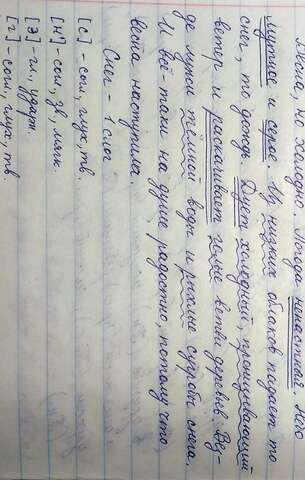 но холодно. Погода ненастная. Небо
мутное и серое. Из низких облаков падает то
снег, то дождь. Дует холодный, пронизывающий
ветер и раскачивает голые ветви деревьев. Вез-
де лужи тёмной воды и рыхлые сугробы снега.
И всё-таки на душе радостно, потому что
весна наступила.
Снег - 1 слог
[с] - согл., глух., тв.
[н'] - согл., зв., мягк.
[э] - гл., ударн.
[г] - согл., глух., тв.